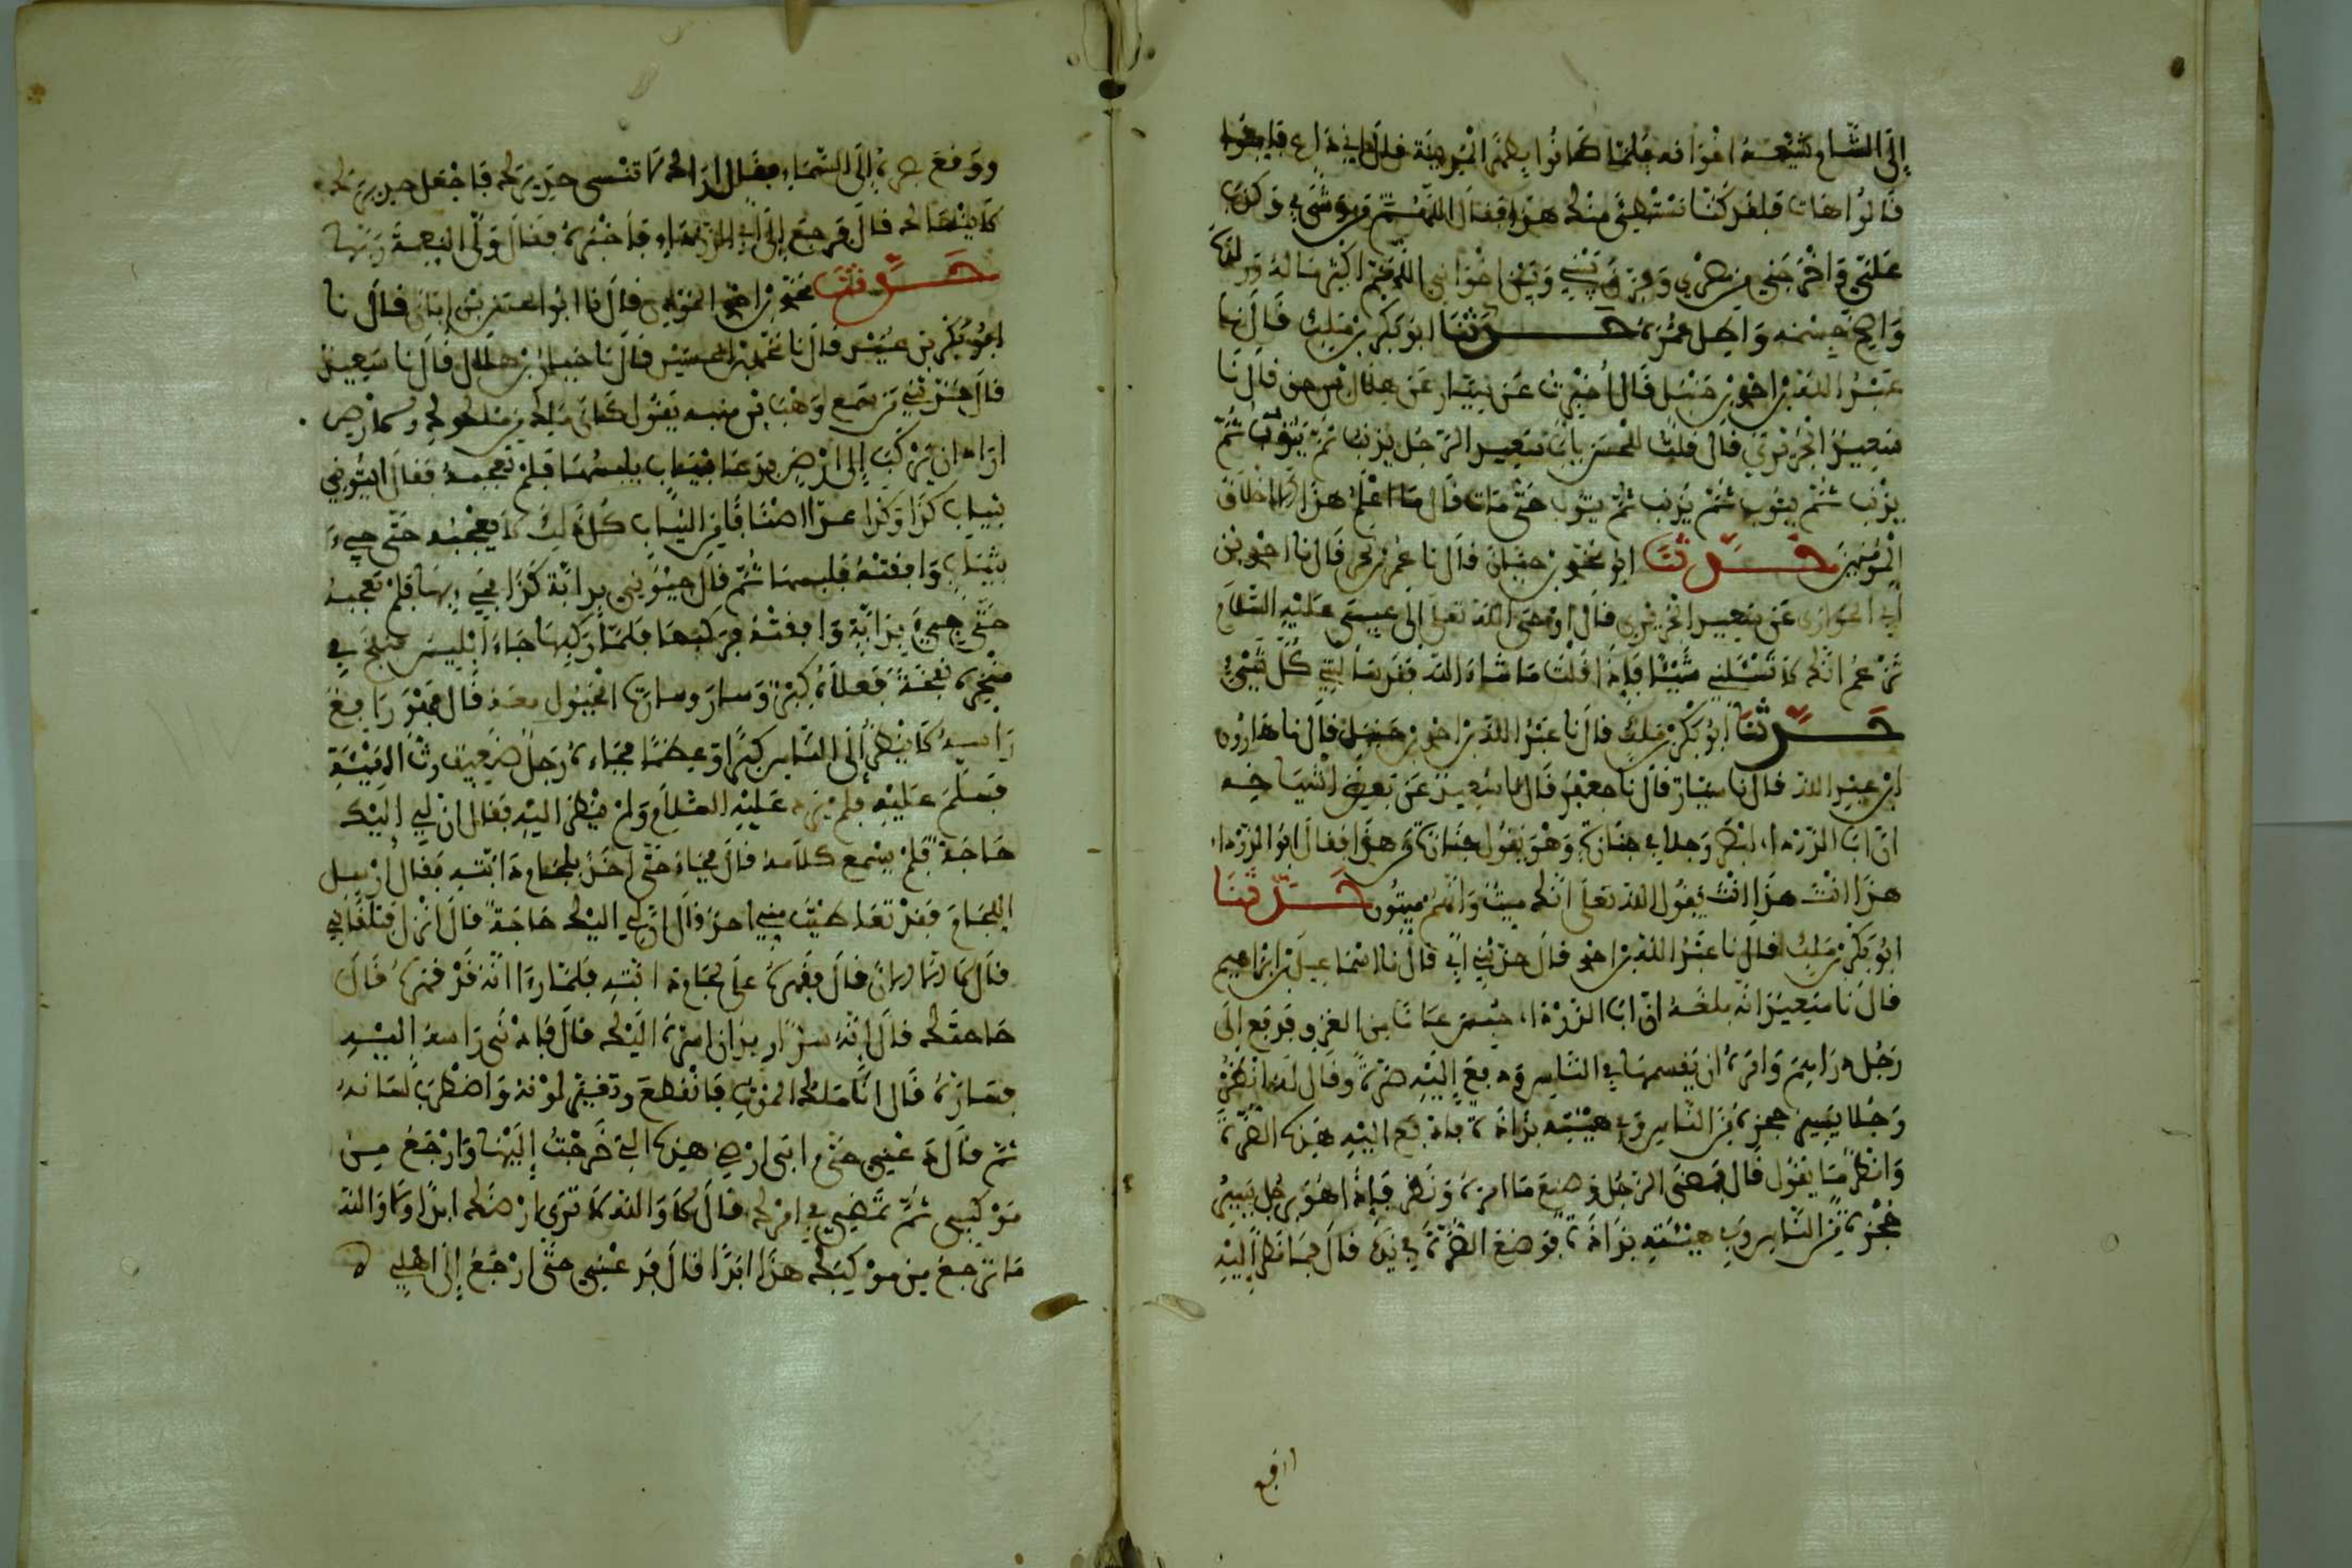 إلى الشام شيعه إخوانه فلما كانوا بظهر المربد قال إني داع فأمنوا
قالوا هات فلقد كنا نشتهي منك هذا فقال اللهم من وشى بي وكذب
علي وأخرجني من مصري وفرق بيني وبين إخواني اللهم أكثر ماله وولده
وأصح جسمه وأطل عمره حدثنا أبو بكر بن ملك قال نا
عبد الله بن أحمد بن حنبل قال أخبرت عن سيار عن قال نا
سعيد الجريري قال قلت للحسن يا أبا سعيد الرجل يذنب ثم يتوب ثم
يذنب ثم يتوب ثم يذنب ثم يتوب حتى متى قال ما أعلم هذا إلا أخلاق
المؤمنين حدثنا أبو محمد بن حيان قال نا عمر بن بحر قال نا أحمد بن
أبي الحواري عن سعيد الجريري قال أوحى الله تعلى إلى عيسى عليه السلام
تزعم أنك لا تسئلني شيئا فإذا قلت ما شاء الله فقد سألتني كل شيء
حدثنا أبو بكر بن ملك قال نا عبد الله بن أحمد بن حنبل قال نا هارون
ابن عبد الله قال نا سيار قال نا جعفر قال نا سعيد عن بعض أشياخه
أن أبا الدرداء أبصر رجلا في جنازة وهو يقول جنازة من هذا فقال أبو الدرداء
هذا أنت هذا أنت يقول الله تعلى إنك ميت وإنهم ميتون حدثنا
أبو بكر بن ملك قال نا عبد الله بن أحمد قال حدثني أبي قال نا إسماعيل بن إبراهيم
قال نا سعيد أنه بلغه أن أبا الدرداء من الغزو فدفع إلى
رجل دراهم وأمره أن يقسمها في الناس ودفع إليه صرة وقال له انظر
رجلا يسير حجزة من الناس في هيئته بذاذة فادفع إليه هذه الصرة
وانظر ما يقول قال فمضى الرجل وصنع ما أمره ونظر فإذا هو برجل يسير
حجزة من الناس في هيئته بذاذة فوضع الصرة في يده قال فما نظر إليه
ورفع بصره إلى السماء فقال أراك لا تنسى حديرك فاجعل حديرك
لا ينساك قال فرجع إلى أبي الدرداء فأخبره فقال ولى النعمة ربها
حدثنا محمد بن أحمد المؤذن قال نا أبو الحسن بن أبان قال نا
أبو بكر بن عبيد قال نا محمد بن الحسين قال نا حبان بن هلال قال نا سعيد
قال حدثني من سمع وهب بن منبه يقول كان ملك من ملوك الأرض
أراد أن يركب إلى أرض فدعا بثياب يلبسها فلم تعجبه فقال ايتوني
بثياب كذا وكذا عد أصنافا من الثياب كل ذلك لا يعجبه حتى جيء
بثياب وافقته فلبسها ثم قال جيئوني بدابة كذا فجيء بها فلم تعجبه
حتى جيء بدابة وافقته فركبها فلما ركبها جاء إبليس فنفخ في
منخره نفخة فملأه كبرا وسار وسارت الخيول معه قال فهو رافع
رأسه لا ينظر إلى الناس كبرا وعظما فجاءه رجل ضعيف رث الهيئة
فسلم عليه فلم يرد عليه السلام ولم ينظر إليه فقال إن لي إليك
حاجة فلم يسمع كلامه قال فجاء حتى أخذ بلجام دابته فقال أرسل
اللجام فقد تعاطيت مني أحد قال إن لي إليك حاجة قال انزل فتلقاني
قال لا الآن قال فقهره على لجام دابته فلما رءا أنه قد قهره قال
حاجتك قال إنه سر أريد أن أسره إليك قال فأدنى رأسه إليه
فساره قال أنا ملك الموت فانقطع وتغير لونه واضطرب لسانه
ثم قال دعني حتى آتي أرضي هذه التي خرجت إليها وأرجع من
موكبي ثم تمضي في أمرك قال لا والله لا ترى أرضك أبدا ولا والله
ما ترجع من موكبك هذا أبدا قال فدعني حتى أرجع إلى أهلي